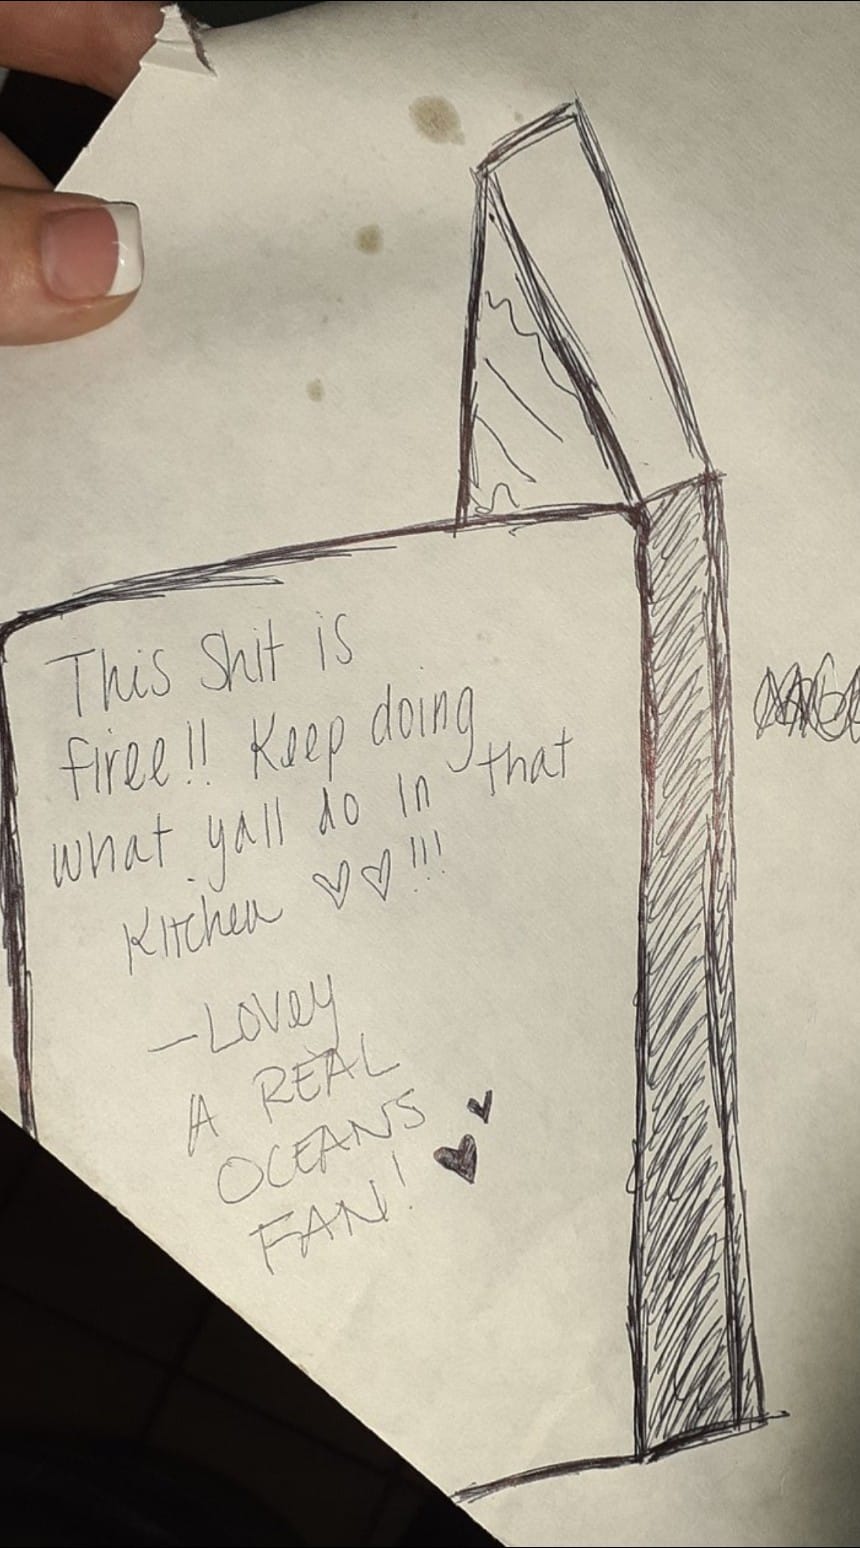 This Shit is
firee!! Keep doing
what yall do in that
Kitchen ♡♡!!!
—Lovey
A REAL
OCEANS
FAN!